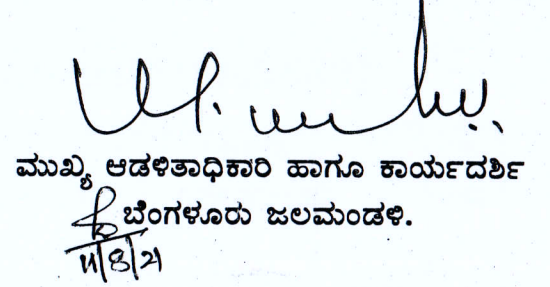 ಮುಖ್ಯ ಆಡಳಿತಾಧಿಕಾರಿ ಹಾಗೂ ಕಾರ್ಯದರ್ಶಿ
ಬೆಂಗಳೂರು ಜಲಮಂಡಳಿ.
11/8/21